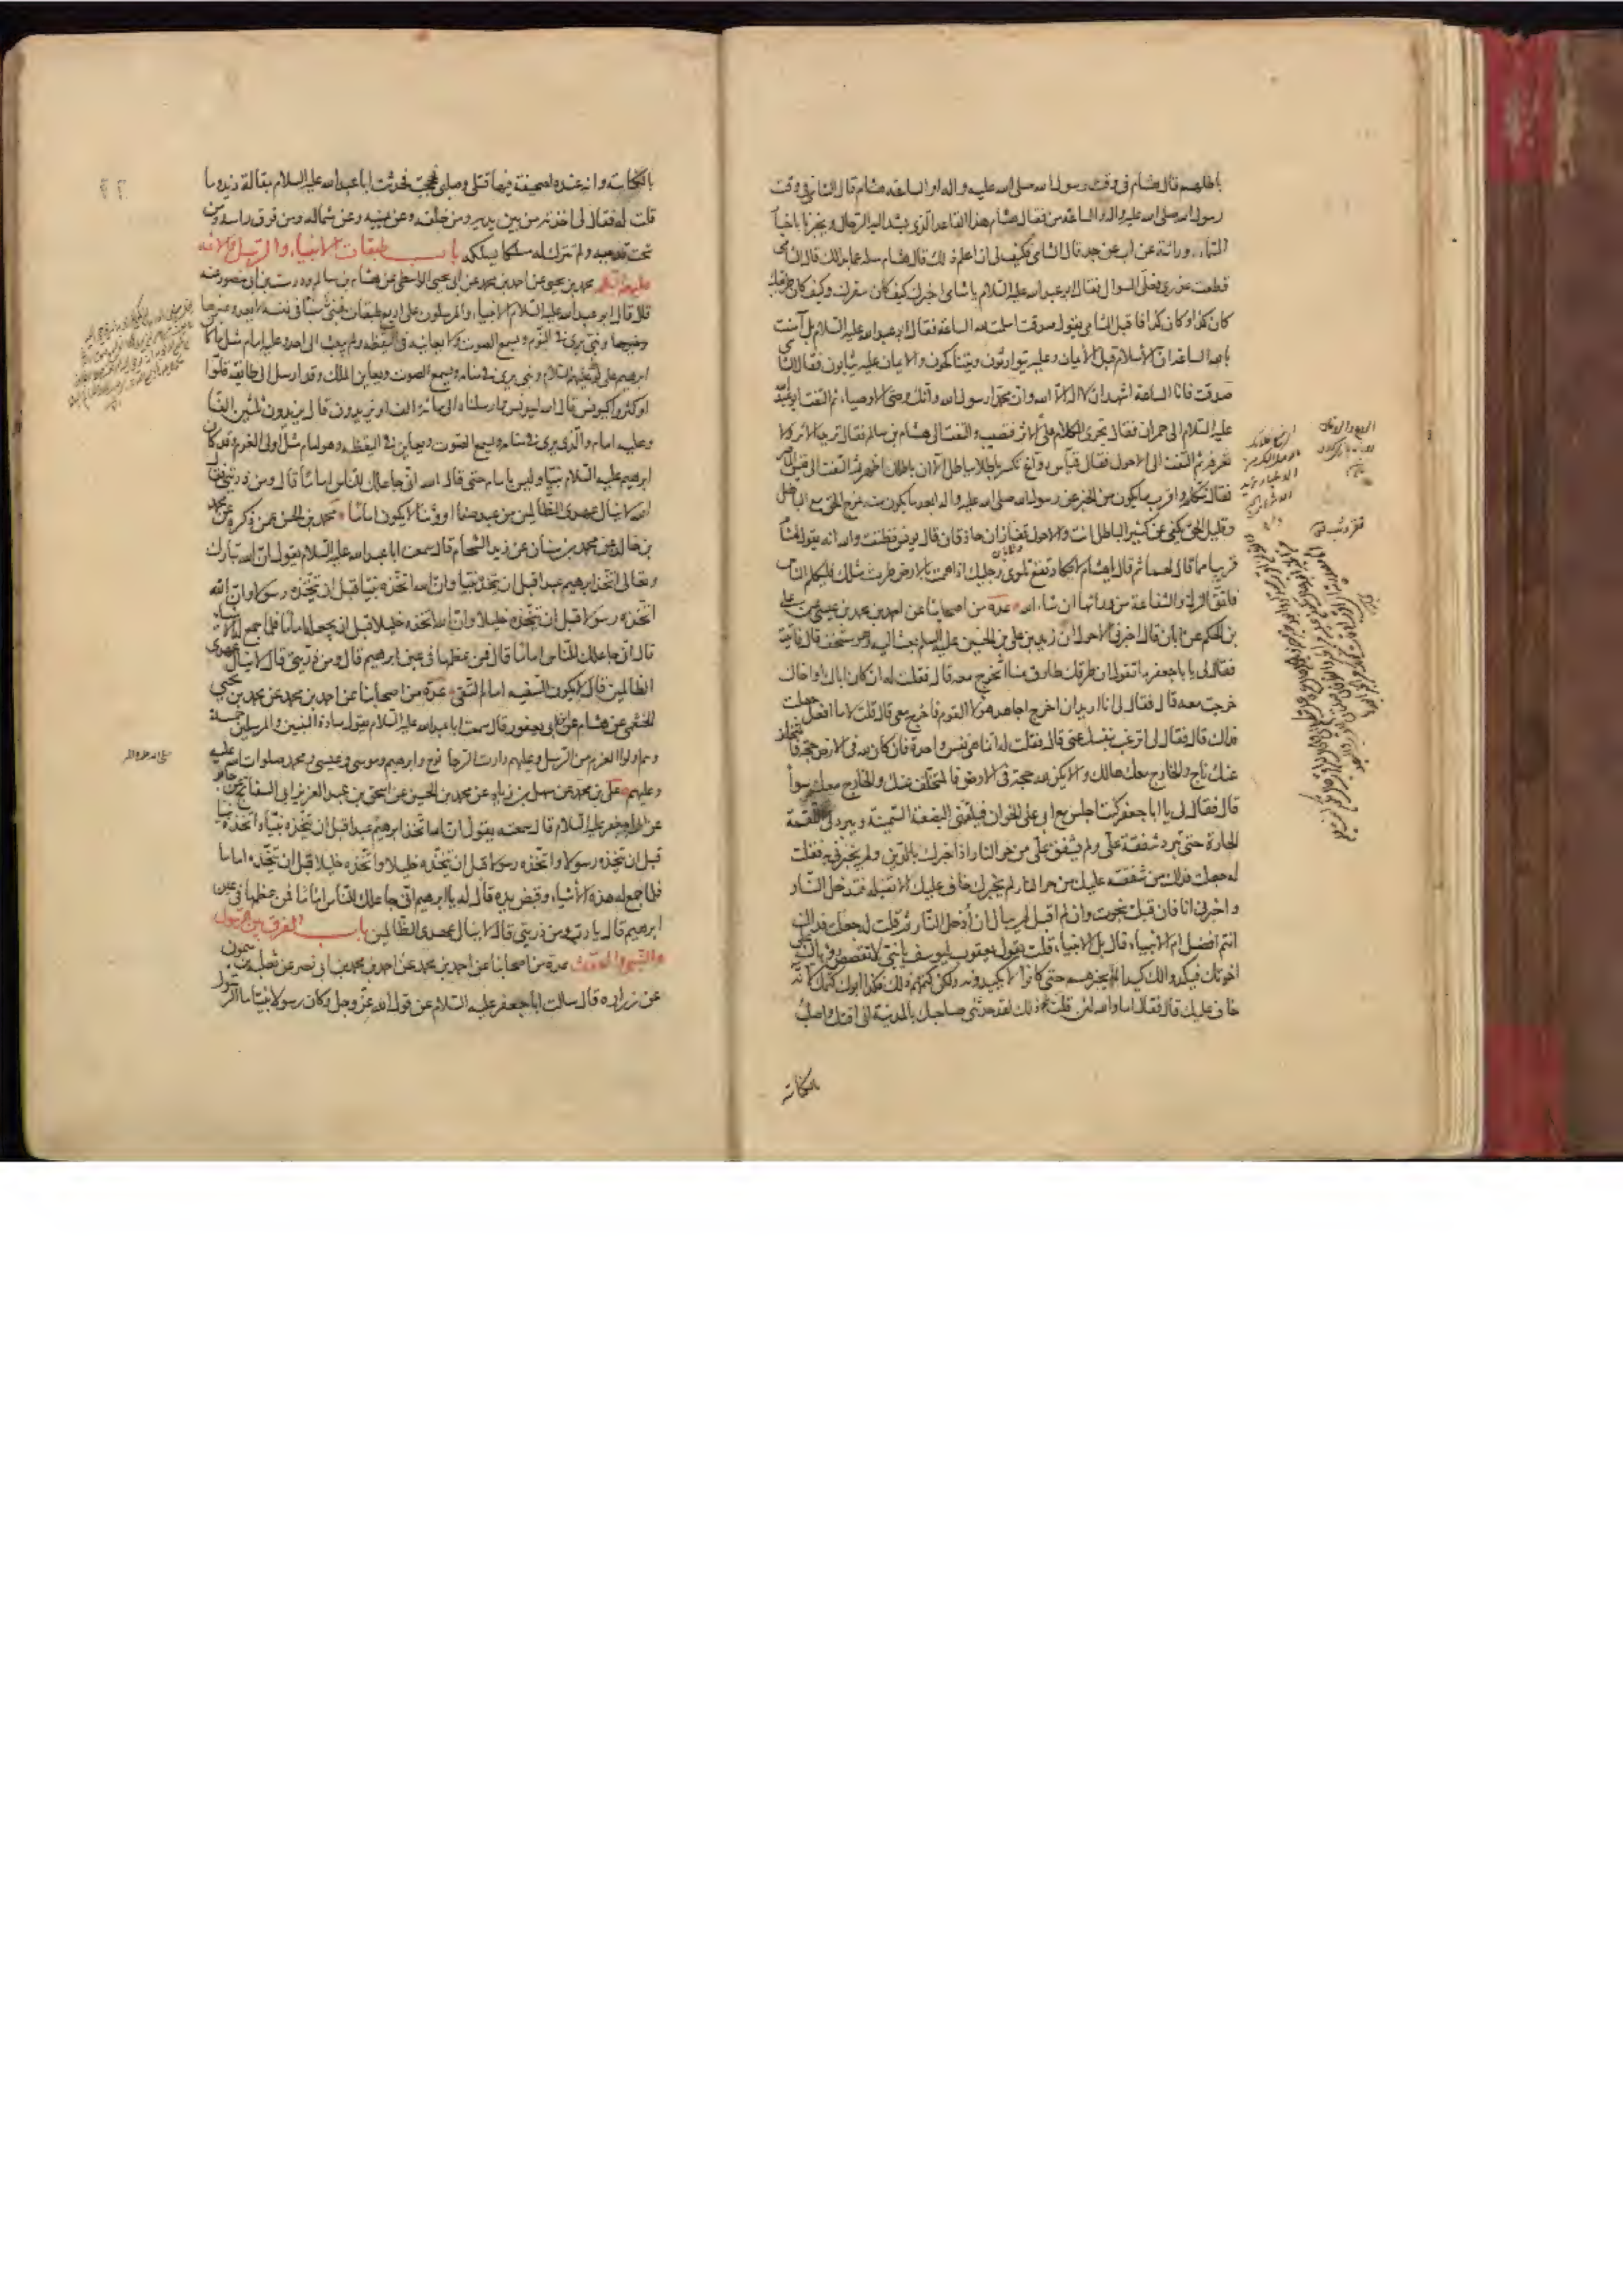 باطلهم قال هشام فى وقت رسول الله صلى الله عليه واله او الساعة هشام قال الشامى فى وقت
رسول الله صلى الله عليه واله والساعة من فقال هشام هذا القاعد الذى يشد اليه الرحال ويخبرنا باخبار
السماء وراثة عن اب عن جد قال الشامى فكيف لى ان اعلم ذلك قال هشام سله عما بدا لك قال الشامى
قطعت عذرى فعلى السؤال فقال ابو عبد الله عليه السلام يا شامى اخبرك كيف كان سفرك وكيف كان طريقك
كان كذا وكان كذا فاقبل الشامى يقول صدقت اسلمت لله الساعة فقال ابو عبد الله عليه السلام بل آمنت
بالله الساعة ان الاسلام قبل الايمان وعليه يتوارثون ويتناكحون والايمان عليه يثابون فقال الشامى
صدقت فانا الساعة اشهد ان لا اله الا الله وان محمدا رسول الله وانك وصى الاوصياء ثم التفت ابو عبد الله
عليه السلام الى حمران فقال تجرى الكلام على الاثر فتصيب والتفت الى هشام بن سالم فقال تريد الاثر ولا
تعرفه ثم التفت الى الاحول فقال قياس رواغ تكسر باطلا بباطل الا ان باطلك اظهر ثم التفت الى قيس الماصر
فقال تتكلم واقرب ما يكون من الخبر عن رسول الله صلى الله عليه واله ابعد ما يكون منه تمزج الحق مع الباطل
وقليل الحق يكفى عن كثير الباطل انت والاحول قفازان حاذقان قال يونس فظننت والله انه يقول لهشام
قريبا مما قال لهما ثم قال يا هشام لا تكاد تقع تلوى رجليك اذا هممت بالارض طرت مثلك فليكلم الناس
فاتق الزلة والشفاعة من ورائها ان شاء الله عدة من اصحابنا عن احمد بن محمد بن عيسى عن على
بن الحكم عن ابان قال اخبرنى الاحول ان زيد بن على بن الحسين عليه السلم بعث اليه وهو مستخف قال فاتيته
فقال لى يا با جعفر ما تقول ان طرقك طارق منا اتخرج معه قال فقلت له ان كان اباك او اخاك
خرجت معه قال فقال لى انا اريد ان اخرج اجاهد هؤلاء القوم فاخرج معى قال قلت لا ما افعل جعلت
فداك قال فقال لى اترغب بنفسك عنى قال فقلت له انما هى نفس واحدة فان كان لله فى الارض حجة فالمتخلف
عنك ناج والخارج معك هالك والا يكن لله حجة فى الارض فالمتخلف عنك والخارج معك سواء
قال فقال لى يا ابا جعفر كنت اجلس مع ابى على الخوان فيلقمنى البضعة السمينة ويبرد لى اللقمة
الحارة حتى تبرد شفقة على ولم يشفق على من حر النار اذا اخبرك بالدين ولم يخبرنى به فقلت
له جعلت فداك من شفقته عليك من حر النار لم يخبرك خاف عليك الا تقبله فتدخل النار
واخبرنى انا فان قبلت نجوت وان لم اقبل لم يبال ان ادخل النار ثم قلت له جعلت فداك
انتم افضل ام الانبياء قال بل الانبياء قلت يقول يعقوب ليوسف يا بنى لا تقصص رؤياك على
اخوتك فيكيدوا لك كيدا لم لم يخبرهم حتى كانوا لا يكيدونه ولكن كتمهم ذلك فكذا ابوك كتمك لانه
خاف عليك قال فقال اما والله لئن قلت ذلك لقد حدثنى صاحبك بالمدينة انى اقتل واصلب
بالكناسة
بالكناسة وان عنده لصحيفة فيها قتلى وصلبى فحججت فحدثت ابا عبد الله عليه السلام بمقالة زيد وما
قلت له فقال لى اخذته من بين يديه ومن خلفه وعن يمينه وعن شماله ومن فوق راسه ومن
تحت قدميه ولم تترك له مسلكا يسلكه باب طبقات الانبياء والرسل والائمة
عليهم السلم محمد بن يحيى عن احمد بن محمد عن ابى يحيى الواسطى عن هشام بن سالم ودرست بن ابى منصور عنه
قال قال ابو عبد الله عليه السلام الانبياء والمرسلون على اربع طبقات فنبى منبأ فى نفسه لا يعدو غيرها
ونبى يرى فى النوم ويسمع الصوت ولا يعاينه فى اليقظة ولم يبعث الى احد وعليه امام مثل ما كان
ابرهيم على لوط عليهما السلام ونبى يرى فى منامه ويسمع الصوت ويعاين الملك وقد ارسل الى طائفة قلوا
او كثروا كيونس قال الله ليونس وارسلناه الى مائة الف او يزيدون قال يزيدون ثلثين الفا
وعليه امام والذى يرى فى منامه ويسمع الصوت ويعاين فى اليقظة وهو امام مثل اولى العزم وقد كان
ابرهيم عليه السلام نبيا وليس بامام حتى قال الله انى جاعلك للناس اماما قال ومن ذريتى فقال
الله لا ينال عهدى الظالمين من عبد صنما او وثنا لا يكون اماما محمد بن الحسن عمن ذكره عن محمد
بن خالد عن محمد بن سنان عن زيد الشحام قال سمعت ابا عبد الله عليه السلام يقول ان الله تبارك
وتعالى اتخذ ابرهيم عبدا قبل ان يتخذه نبيا وان الله اتخذه نبيا قبل ان يتخذه رسولا وان الله
اتخذه رسولا قبل ان يتخذه خليلا وان الله اتخذه خليلا قبل ان يجعله اماما فلما جمع له الاشياء
قال انى جاعلك للناس اماما قال فمن عظمها فى عين ابرهيم قال ومن ذريتى قال لا ينال عهدى
الظالمين قال لا يكون السفيه امام التقى عدة من اصحابنا عن احمد بن محمد عن محمد بن يحيى
الخثعمى عن هشام عن ابن ابى يعفور قال سمعت ابا عبد الله عليه السلام يقول سادة النبيين والمرسلين خمسة
وهم اولوا العزم من الرسل وعليهم دارت الرحا نوح وابرهيم وموسى وعيسى ومحمد صلوات الله عليه
وعليهم على بن محمد عن سهل بن زياد عن محمد بن الحسين عن اسحق بن عبد العزيز ابى السفاتج عن جابر
عن ابى جعفر عليه السلام قال سمعته يقول ان الله اتخذ ابرهيم عبدا قبل ان يتخذه نبيا واتخذه نبيا
قبل ان يتخذه رسولا واتخذه رسولا قبل ان يتخذه خليلا واتخذه خليلا قبل ان يتخذه اماما
فلما جمع له هذه الاشياء وقبض يده قال له يا ابرهيم انى جاعلك للناس اماما فمن عظمها فى عين
ابرهيم قال يا رب ومن ذريتى قال لا ينال عهدى الظالمين باب الفرق بين الرسول
والنبى والمحدث عدة من اصحابنا عن احمد بن محمد عن احمد بن محمد بن ابى نصر عن ثعلبة بن ميمون
عن زرارة قال سالت ابا جعفر عليه السلام عن قول الله عز وجل وكان رسولا نبيا ما الرسول